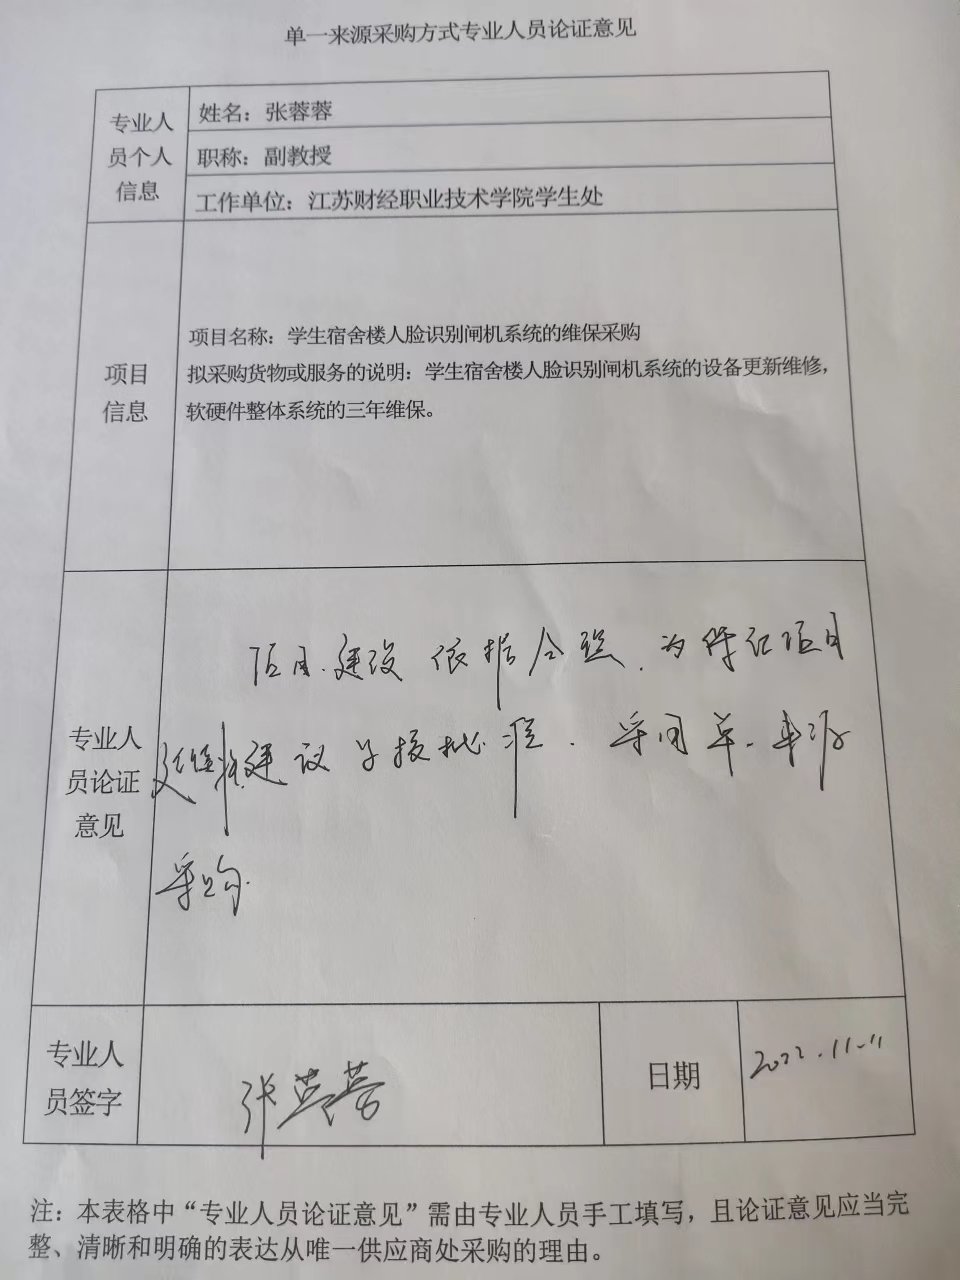 单一来源采购方式专业人员论证意见
专业人员个人信息
姓名：张蓉蓉
职称：副教授
工作单位：江苏财经职业技术学院学生处
项目信息
项目名称：学生宿舍楼人脸识别闸机系统的维保采购
拟采购货物或服务的说明：学生宿舍楼人脸识别闸机系统的设备更新维修，
软硬件整体系统的三年维保。
专业人员论证意见
项目建设依据合理，为保证项目
延续性，建议学校批准，采用单一来源
采购。
专业人员签字
张蓉蓉
日期
2022.11.11
注：本表格中“专业人员论证意见”需由专业人员手工填写，且论证意见应当完
整、清晰和明确的表达从唯一供应商处采购的理由。